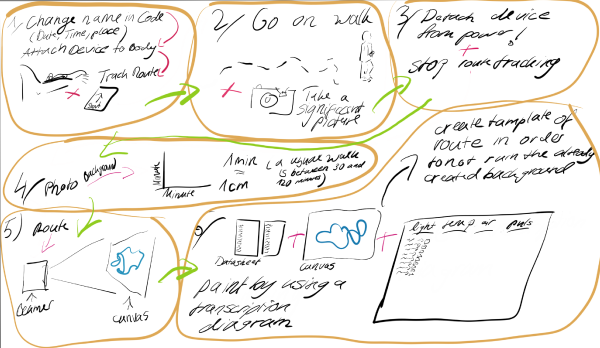 1/ Change name in Code
(Date, Time, place)
Attach Device to Body
Track Route
2/ Go on walk
Take a
significant
picture
3/ Detach device
from power!
stop route tracking
4/ Photo Background
Minute
Minute
1 min
=
1 cm
(a usual walk
is between 30 and
120 minutes)
create template of
route in order
to not ruin the already
created background
5) Route
Beamer
canvas
Datasheet
Canvas
paint by using a
transcription
diagram
light temp air